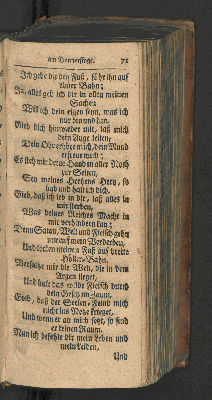 am Donnerstage. 71
Ich gebe dir den Fuß, führ ihn auf
deiner Bahn;
Ja, alles geb ich dir in allen meinen
Sachen;
Will ich dein eigen seyn, was ich
nur bin und kan.
Gieb dich hinwieder mir, laß mich
dein Auge leiten,
Dein Ohr erhöre mich, dein Mund
erfreue mich;
Es steh mir deine Hand in aller Noth
zur Seiten,
Sey meines Hertzens Hertz, so
hab und halt ich dich.
Gieb, daß ich leb in dir, laß alles in
mir sterben,
Was deines Reiches Macht in
mir verhindern kan;
Denn Satan, Welt und Fleisch gehn
nur auf mein Verderben,
Und locken meinen Fuß auf breite
Höllen-Bahn.
Versaltze mir die Welt, die in dem
Argen lieget,
Und halt das wilde Fleisch durch
dein Gesetz im Zaum,
Gieb, daß der Seelen-Feind mich
nicht ins Netze krieget,
Und wenn er an mich setzt, so find
er keinen Raum.
Nun ich befehle dir mein Leben und
mein Leiden,
Und